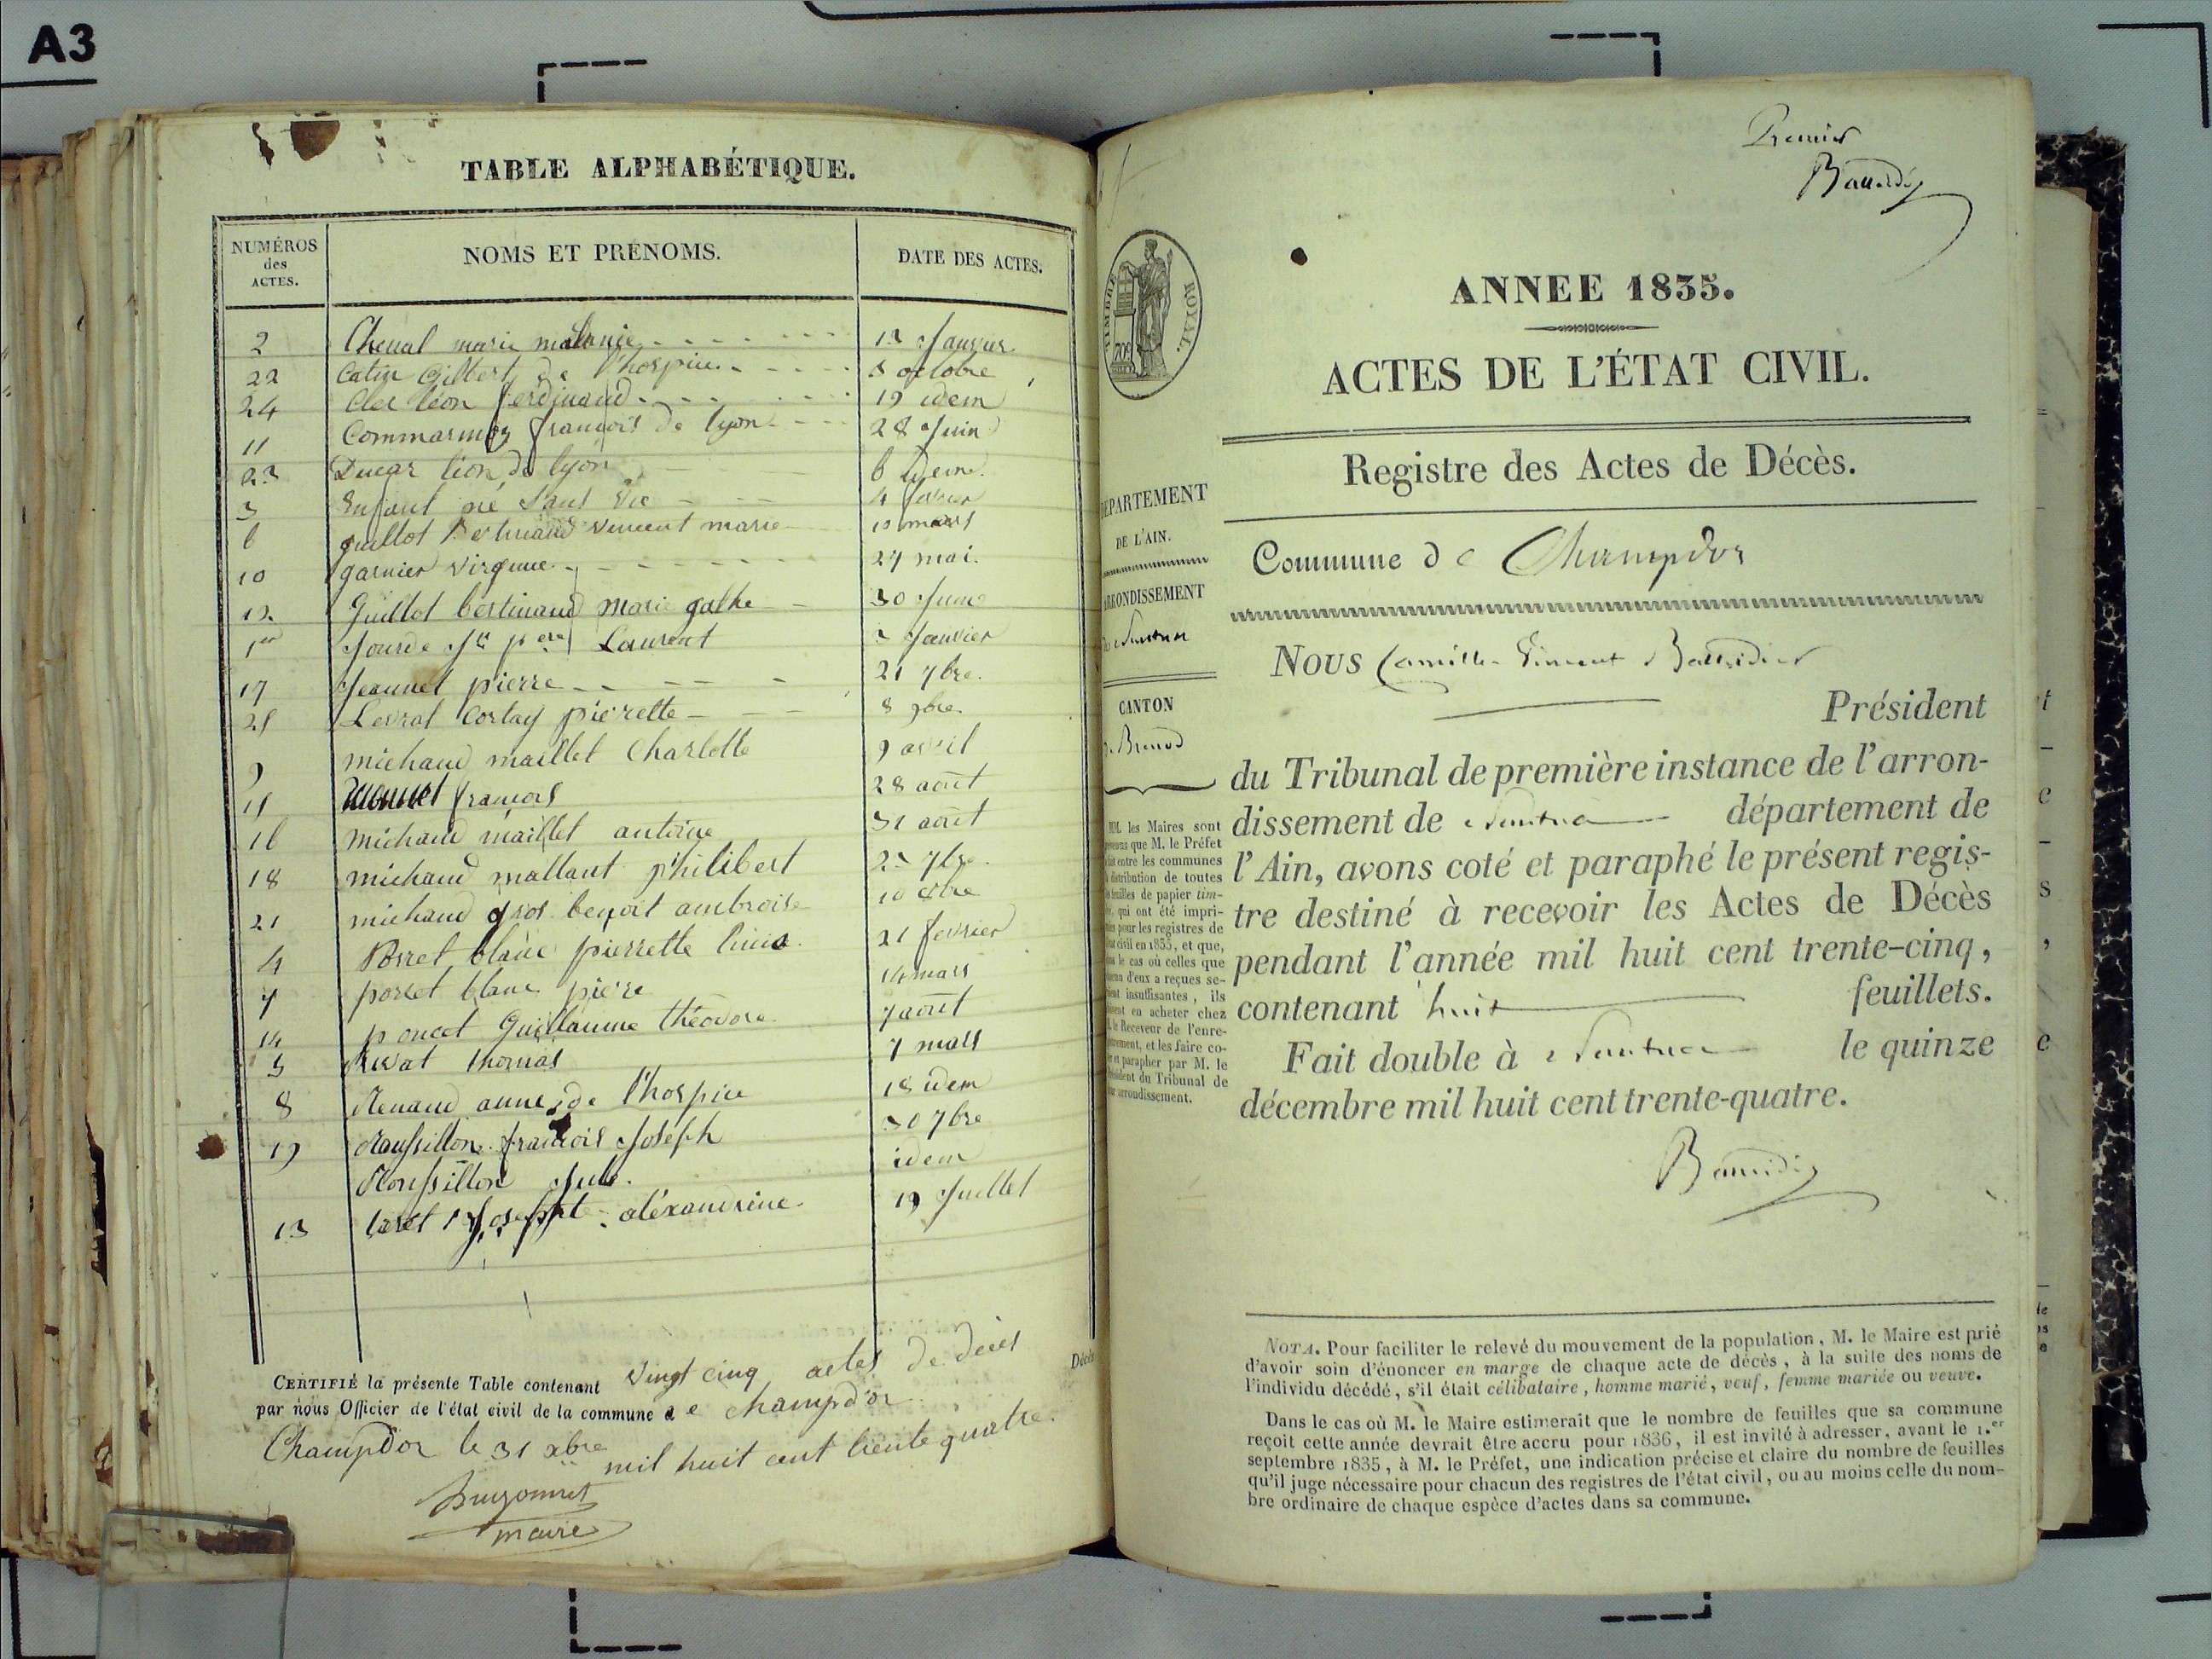 A3
TABLE ALPHABÉTIQUE.
NUMÉROS des ACTES. NOMS ET PRÉNOMS. DATE DES ACTES.
2 Cheval marie 13 Janvier
22 Catin Gilbert de l'hospice 5 octobre
24 Clet léon ferdinand 19 idem
11 Commarmoz françois de lyon 28 Juin
23 léon de lyon 6 idem
3 Enfant né Sans Vie 4 fevrier
6 guillot Bertinand vincent marie 10 mars
10 garnier virginie 27 mai.
12 Guillot bertinand marie 30 Juin
1er Jourde Laurent 2 Janvier
17 Jeannet pierre 21 7bre.
25 Levrat Cortay pierrette 8 9bre.
9 michaud maillet Charlotte 9 avril
15 françois 28 août
16 michaud maillet antoine 31 août
18 michaud mallant philibert 25 7bre.
21 michaud gros benoit ambroise 10 8bre
4 Porret blanc pierrette 21 fevrier
7 porret blanc pierre 14 mars
14 poncet Guillaume théodore 7 août
5 Rivat thomas 7 mars
8 Renaud anne, de l'hospice 18 idem
19 Roussillon françois Joseph 30 7bre
Roussillon Jule. idem
13 alexandrine 19 Juillet
CERTIFIÉ la présente Table contenant vingt cinq actes de décès
par nous Officier de l'état civil de la commune de Champdor
Champdor le 31 xbre mil huit cent trente quatre.
maire
Décès
Premier
ANNEE 1835.
TIMBRE ROYAL.
ACTES DE L'ÉTAT CIVIL.
Registre des Actes de Décès.
DÉPARTEMENT
DE L'AIN.
ARRONDISSEMENT
de Nantua
CANTON
de Brenod
MM. les Maires sont
prévenus que M. le Préfet
fait entre les communes
la distribution de toutes
les feuilles de papier tim-
bré, qui ont été impri-
mées pour les registres de
l'état civil en 1835, et que,
dans le cas où celles que
chacun d'eux a reçues se-
raient insuffisantes, ils
devront en acheter chez
M. le Receveur de l'enre-
gistrement, et les faire co-
ter et parapher par M. le
Président du Tribunal de
leur arrondissement.
Commune de Champdor
Nous Camille Vincent Baudin
Président
du Tribunal de première instance de l'arron-
dissement de Nantua département de
l'Ain, avons coté et paraphé le présent regis-
tre destiné à recevoir les Actes de Décès
pendant l'année mil huit cent trente-cinq,
contenant huit feuillets.
Fait double à Nantua le quinze
décembre mil huit cent trente-quatre.
NOTA. Pour faciliter le relevé du mouvement de la population, M. le Maire est prié
d'avoir soin d'énoncer en marge de chaque acte de décès, à la suite des noms de
l'individu décédé, s'il était célibataire, homme marié, veuf, femme mariée ou veuve.
Dans le cas où M. le Maire estimerait que le nombre de feuilles que sa commune
reçoit cette année devrait être accru pour 1836, il est invité à adresser, avant le 1.er
septembre 1835, à M. le Préfet, une indication précise et claire du nombre de feuilles
qu'il juge nécessaire pour chacun des registres de l'état civil, ou au moins celle du nom-
bre ordinaire de chaque espèce d'actes dans sa commune.